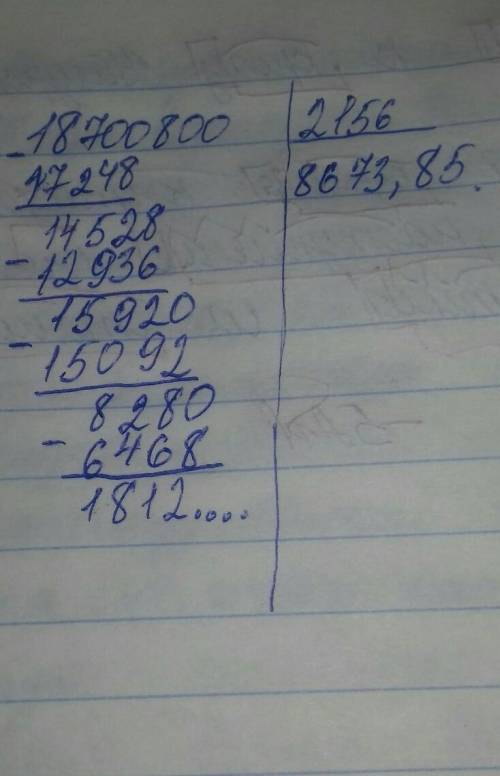 18700800 2156
17248 8673,85.
14528
- 12936
15920
- 15092
8280
- 6468
1812....